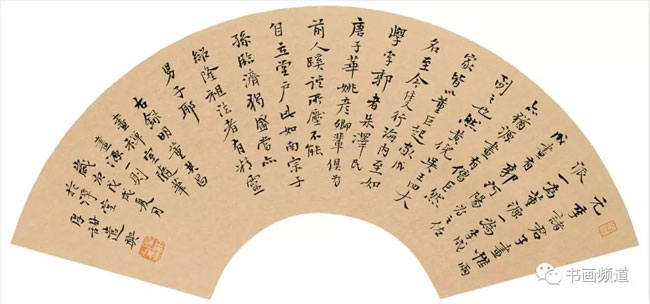 元季諸君子畫惟兩
派一為董源一為李成
成畫有郭河陽為之佐
亦猶源畫有僧巨然
副之也然黃倪吳王四大
家皆以董巨起家成
名至今隻行海內至如
學李郭者朱澤民
唐子華姚彥卿輩俱為
前人蹊徑所壓不能
自立堂戶此如南宗子
孫臨濟獨盛當亦
紹隆祖法者有精靈
男子耶
右錄明董其昌
畫禪室隨筆
畫源一則
歲次戊戌夏月
於淨堂
书画频道